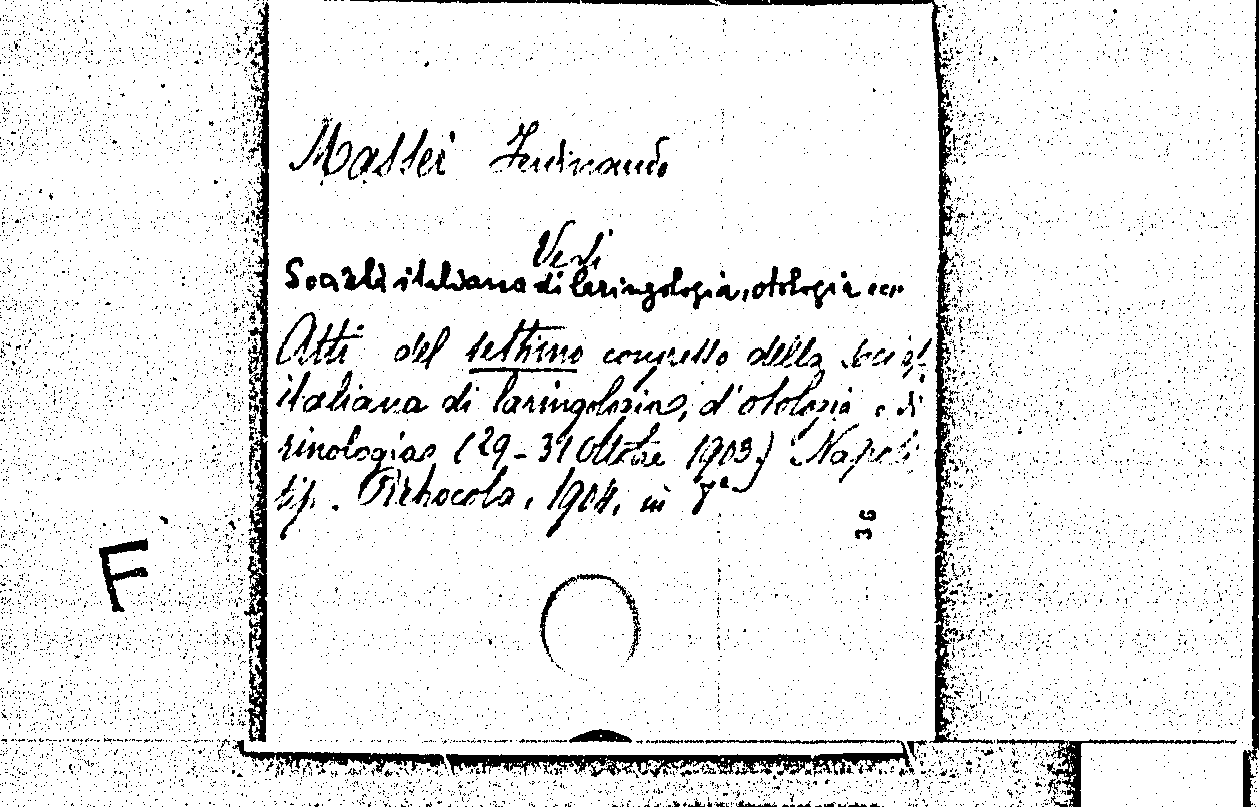 Massei Ferdinando
Vedi
Società italiana di laringologia, otologia ecc.
Atti del settimo congresso della Societ.
italiana di laringologia, d'otologia e di
rinologia (29-31 Ottobre 1903) Napoli
tip. 1904, in
36
F